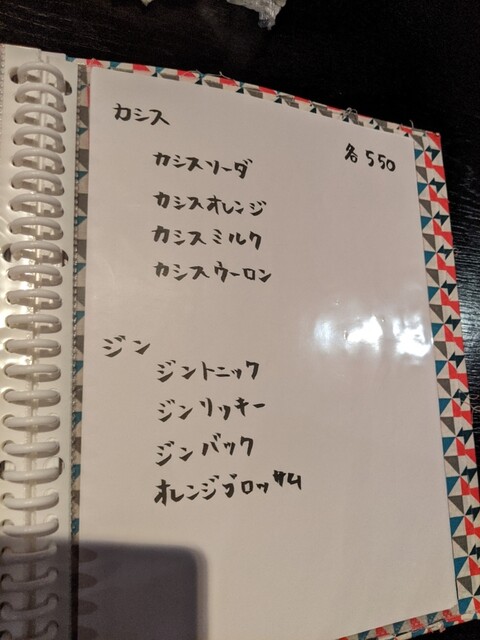 カシス
各550
カシスソーダ
カシスオレンジ
カシスミルク
カシスウーロン
ジン
ジントニック
ジンリッキー
ジンバック
オレンジブロッサム